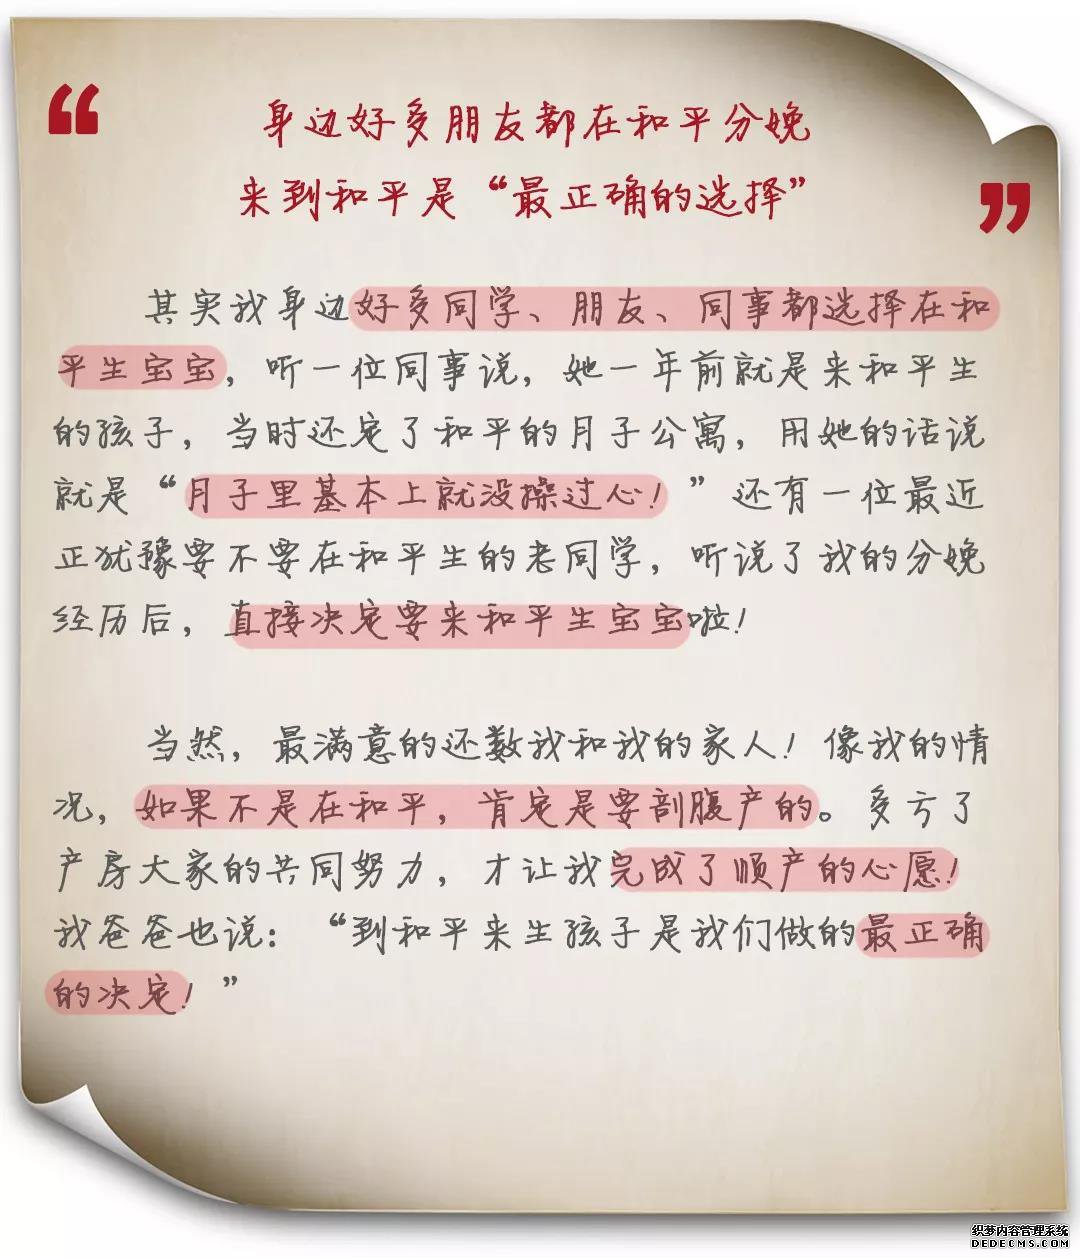 “
身边好多朋友都在和平分娩
来到和平是“最正确的选择”
”
其实我身边好多同学、朋友、同事都选择在和
平生宝宝，听一位同事说，她一年前就是来和平生
的孩子，当时还定了和平的月子公寓，用她的话说
就是“月子里基本上就没操过心！”还有一位最近
正犹豫要不要在和平生的老同学，听说了我的分娩
经历后，直接决定要来和平生宝宝啦！
当然，最满意的还数我和我的家人！像我的情
况，如果不是在和平，肯定是要剖腹产的。多亏了
产房大家的共同努力，才让我完成了顺产的心愿！
我爸爸也说：“到和平来生孩子是我们做的最正确
的决定！”
织梦内容管理系统
DEDECMS.COM